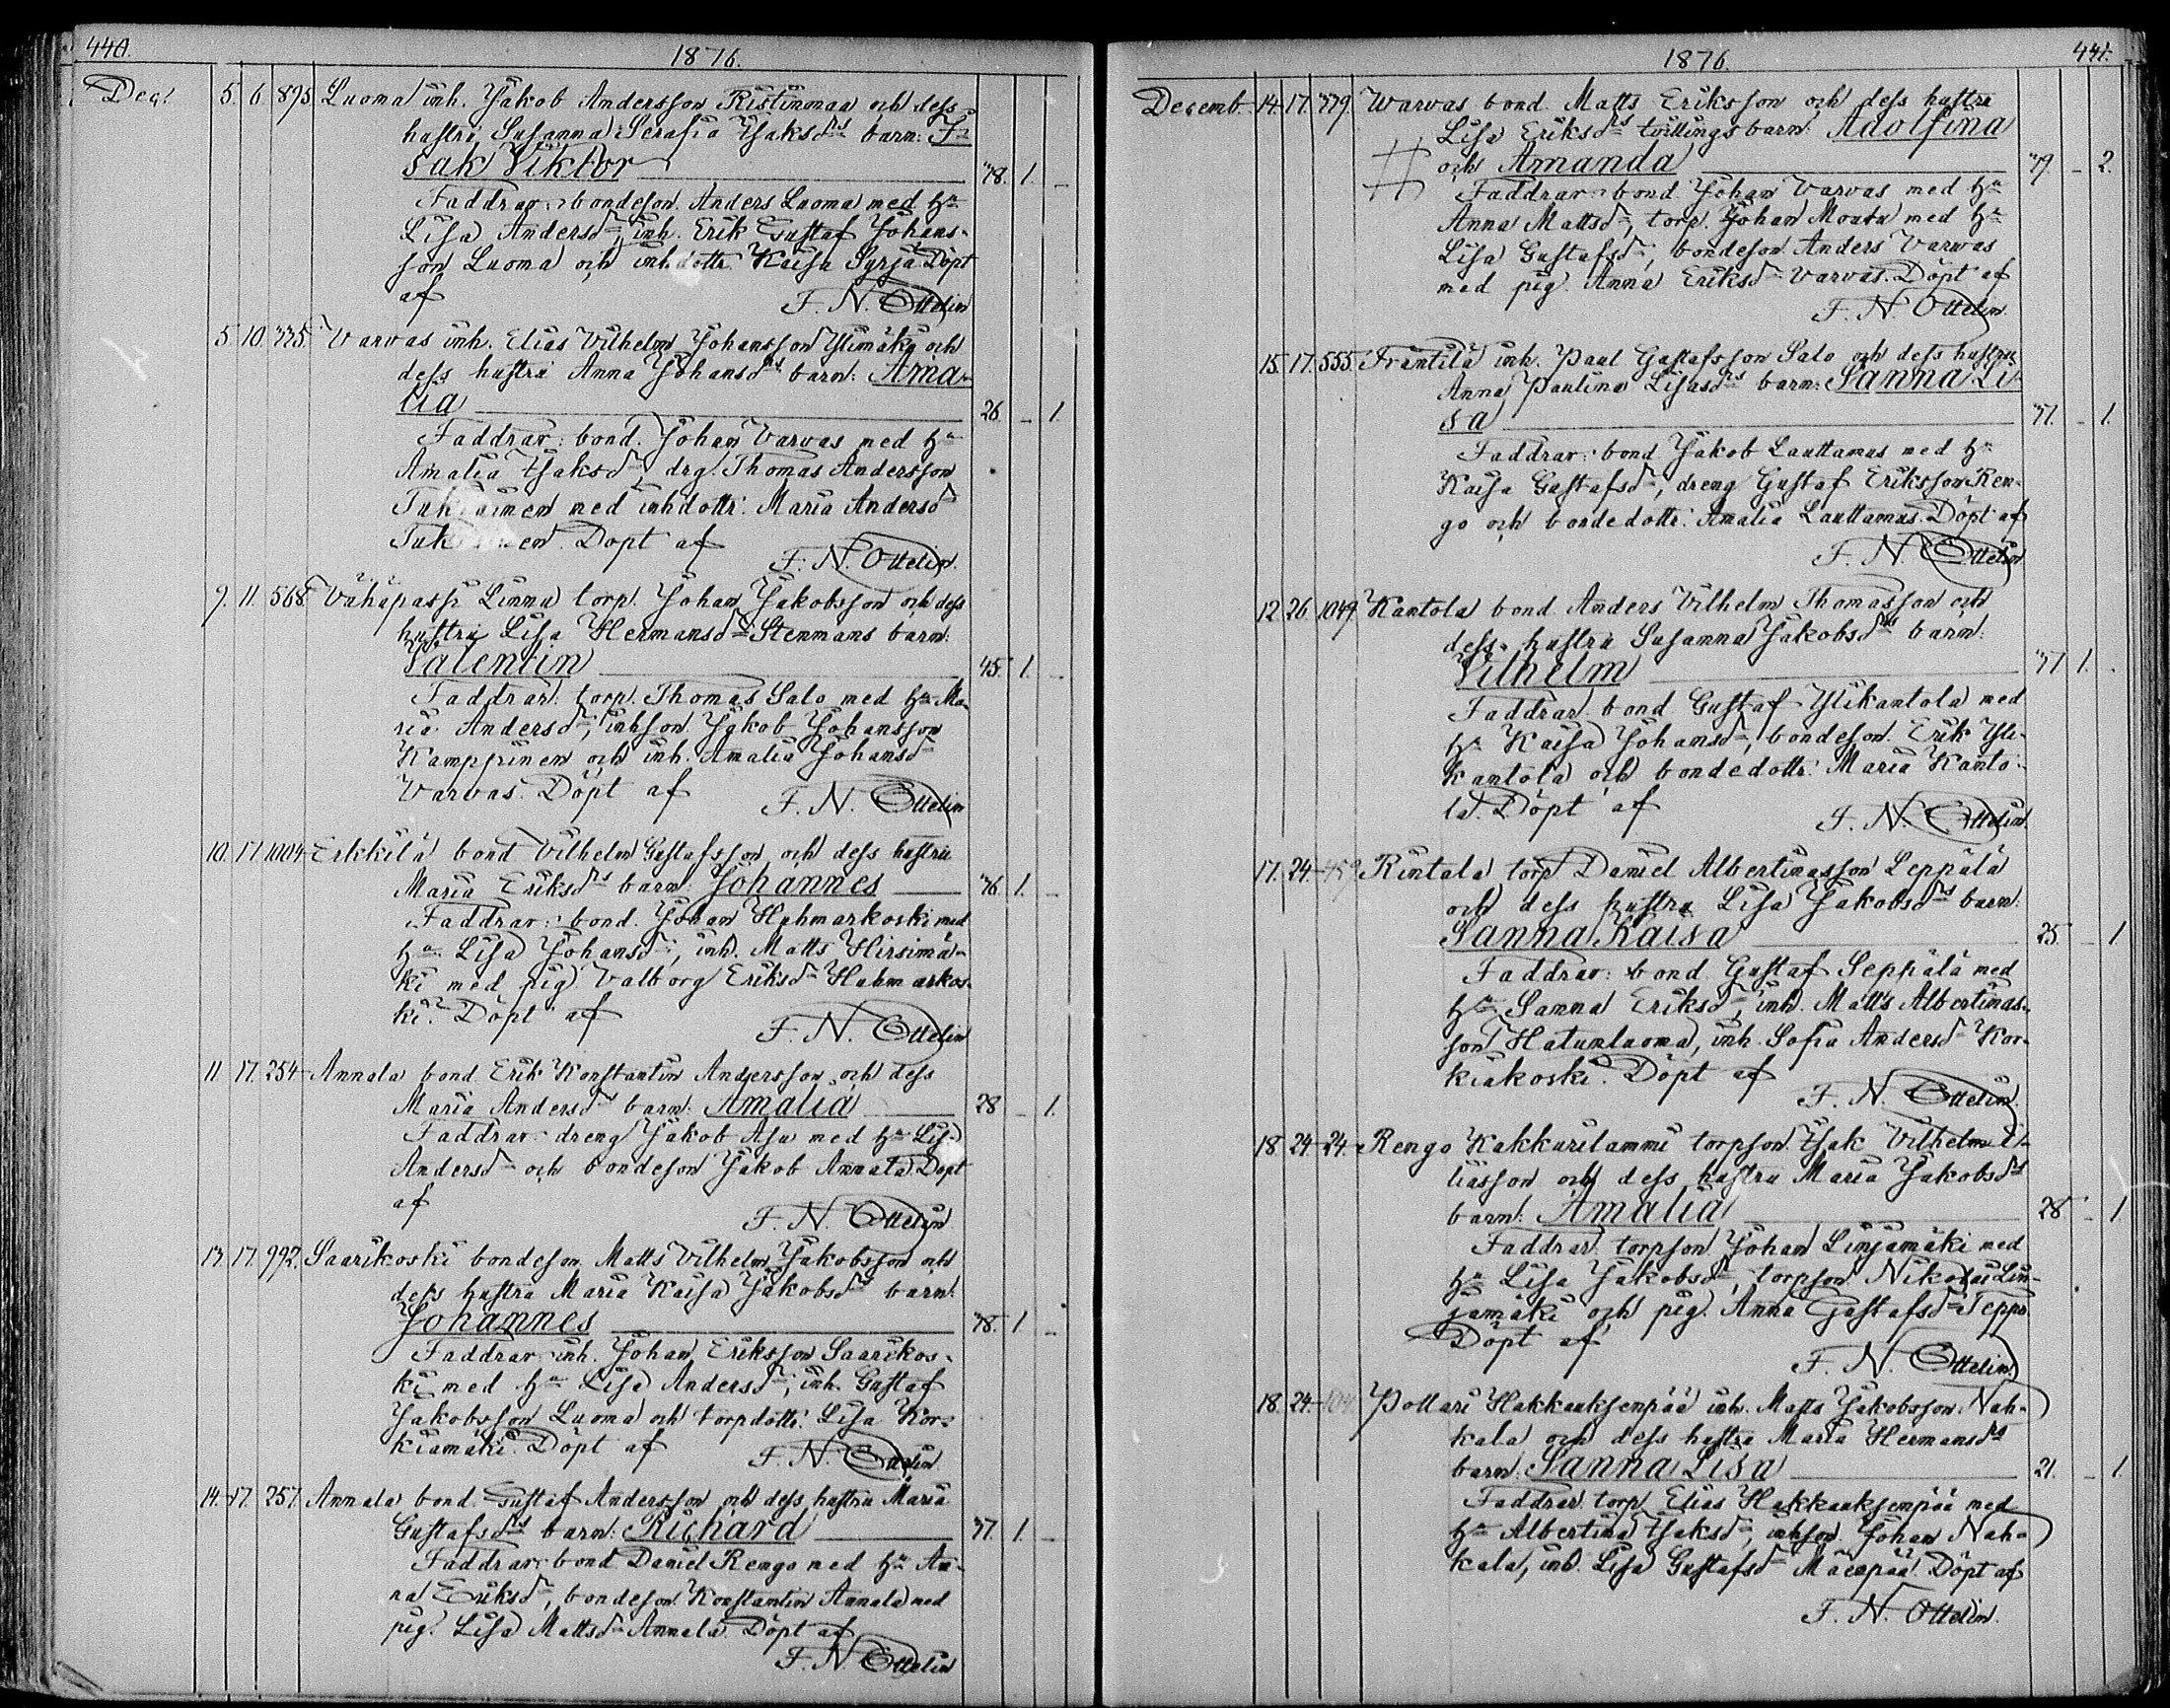 440.
1876.
Dec.
5. 6. 895 Luoma inh. Jakob Andersson Ristinmaa och dess
hustru Susanna Serafia Isaksdrs barn: I-
sak Viktor 38. 1. -
Faddrar: bondeson Anders Luoma med hu
Lisa Andersdr, inh. Erik Gustaf Johans-
son Luoma och inh.dottr. Kaisa Syrjä Döpt
af F. N. Ottelin
5. 10. 335. Varvas inh. Elias Vilhelm Johansson Ylimäki och
dess hustru Anna Johansdrs barn: Ama-
lia 26. - 1.
Faddrar: bond. Johan Varvas med hu
Amalia Isaksdr, drg. Thomas Andersson
Tukiainen med inhdottr. Maria Andersdr
Döpt af F. N. Ottelin.
9. 11. 568. Vähäpassi Linna torp. Johan Jakobsson och dess
hustru Lisa Hermansdr Stenmans barn:
Valentin 45. 1. -
Faddrar: torp. Thomas Salo med hu Ma-
ria Andersdr, inhson Jakob Johansson
Kamppinen och inh. Amalia Johansdr
Varvas. Döpt af F. N. Ottelin
10. 17. 1004 Erkkilä bond Vilhelm Gustafsson och dess hustru
Maria Eriksdrs barn: Johannes 36 1. -
Faddrar: bond. Johan Huhmarkoski med
hu Lisa Johansdr, inh. Matts Hirsimä-
ki med pig. Valborg Eriksdr Huhmarkos-
ki. Döpt af F. N. Ottelin
11 17. 254 Annala bond Erik Konstantin Andersson och dess
Maria Andersdr barn: Amalia 28 - 1.
Faddrar: dreng Jakob Asu med hu Lisa
Andersdr och bondeson Jakob Annala Döpt
af F. N. Ottelin
13. 17. 992. Saarikoski bondeson Matts Vilhelm Jakobsson och
dess hustru Maria Kaisa Jakobsdrs barn:
Johannes 38. 1. -
Faddrar: inh. Johan Eriksson Saarikos-
ki med hu Lisa Andersdr, inh. Gustaf
Jakobsson Luoma och torpdottr. Lisa Kor-
kiamäki. Döpt af F. N. Ottelin
14. 17. 257. Annala bond Gustaf Andersson och dess hustru Maria
Gustafsdrs barn: Richard 37. 1. -
Faddrar: bond Daniel Rengo med hu An-
na Eriksdr, bondeson Konstantin Annala med
pig. Lisa Mattsdr Annala. Döpt af
F. N. Ottelin
1876.
441.
Decemb. 14. 17. 339. Warvas bond. Matts Eriksson och dess hustru
Lisa Eriksdrs tvillingsbarn: Adolfina
och Amanda 39. - 2.
Faddrar: bond Johan Varvas med hu
Anna Mattsdr, torp. Johan med hu
Lisa Gustafsdr, bondeson Anders Varvas
med pig. Anna Eriksdr Varvas. Döpt af
F. N. Ottelin
15. 17. 555. Frantilä inh. Paul Gustafsson Salo och dess hustru
Anna Paulina Lisasdrs barn: Sanna Li-
sa 31. - 1.
Faddrar: bond Jakob Lauttamus med hu
Kaisa Gustafsdr, dreng Gustaf Eriksson Ren-
go och bondedottr. Amalia Lauttamus. Döpt af
F. N. Ottelin
12. 26. 1049. Kantola bond Anders Vilhelm Thomasson och
dess hustru Susanna Jakobsdrs barn:
Vilhelm 37 1. -
Faddrar bond Gustaf Ylikantola med
hu Kaisa Johansdr, bondeson Erik Yli-
kantola och bondedottr. Maria Kanto-
la. Döpt af F. N. Ottelin.
17. 24. 459 Rintala torp Daniel Albertinasson Leppälä
och dess hustru Lisa Jakobsdrs barn:
Sanna Kaisa 25. - 1
Faddrar: bond Gustaf Seppälä med
hu Sanna Eriksdr, inh. Matts Albertinas-
son Hatunluoma, inh. Sofia Andersdr Kor-
kiakoski. Döpt af
F. N. Ottelin.
18. 24. 24. Rengo Kakkurilammi torpson Isak Vilhelm E-
liasson och dess hustru Maria Jakobsdrs
barn: Amalia 28 - 1
Faddrar torpson Johan Linjamäki med
hu Lisa Jakobsdr, torpson Nikolai Lin-
jamäki och pig. Anna Gustafsdr Teppo
Döpt af
F. N. Ottelin.
18. 24. 104 Pottari Hakkauksenpää inh. Matts Jakobsson Nah-
kala och dess hustru Maria Hermansdrs
barn: Sanna Lisa 21. - 1
Faddrar torp Elias Hakkauksenpää med
hu Albertina Isaksdr, inhson Johan Nah-
kala, inh. Lisa Gustafsdr Mäenpää. Döpt af
F. N. Ottelin.